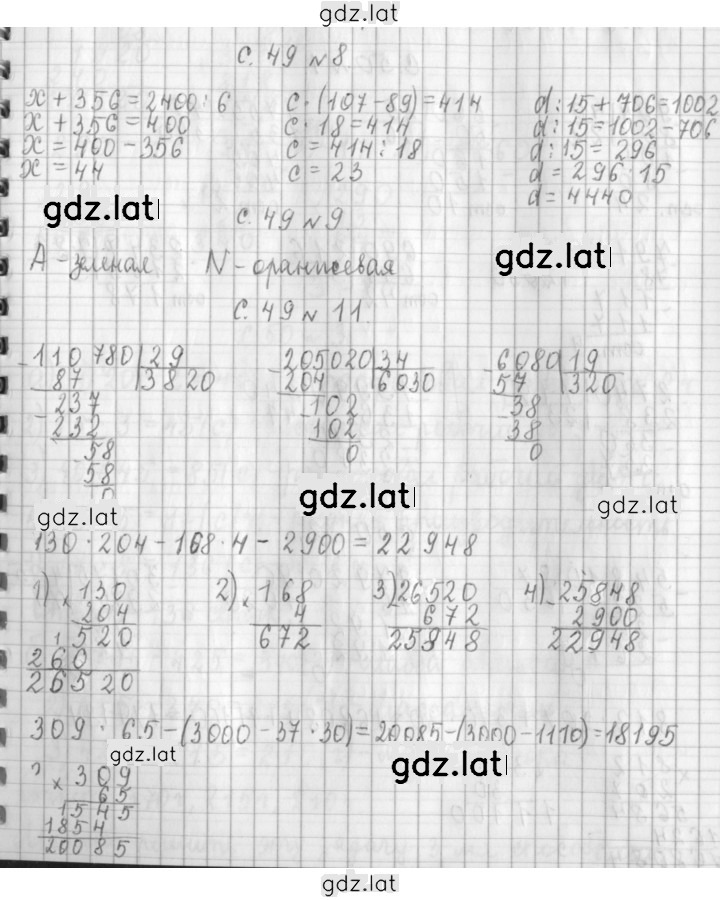 gdz.lat
с. 49 № 8
x + 356 = 2400 : 6
x + 356 = 400
x = 400 - 356
x = 44
c · (107 - 89) = 414
c · 18 = 414
c = 414 : 18
c = 23
d : 15 + 706 = 1002
d : 15 = 1002 - 706
d : 15 = 296
d = 296 · 15
d = 4440
gdz.lat
gdz.lat
с. 49 № 9
А - зеленая N - оранжевая
с. 49 № 11.
- 110780 | 29
87 | 3820
- 237
232
58
58
0
- 205020 | 34
204 | 6030
102
102
0
- 6080 | 19
57 | 320
38
38
0
gdz.lat
gdz.lat
gdz.lat
130 · 204 - 168 · 4 - 2900 = 22948
1) × 130
204
1520
260
26520
2) × 168
4
672
3) - 26520
672
25848
4) - 25848
2900
22948
309 · 65 - (3000 - 37 · 30) = 20085 - (3000 - 1110) = 18195
gdz.lat
gdz.lat
× 309
65
1545
1854
20085
gdz.lat